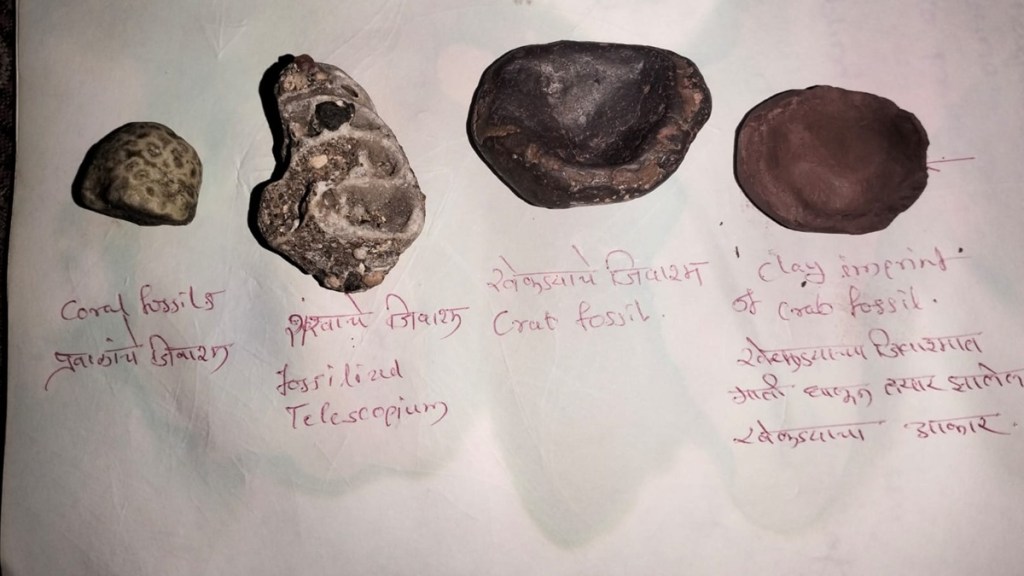 Coral fossils
प्रवाळांचे जिवाश्म
शंखाचे जिवाश्म
fossilized
Telescopium
खेकड्याचे जिवाश्म
Crab fossil.
Clay imprint
of Crab fossil.
खेकड्याच्या जिवाश्मात
माती घालून तयार झालेला
खेकड्याचा आकार.